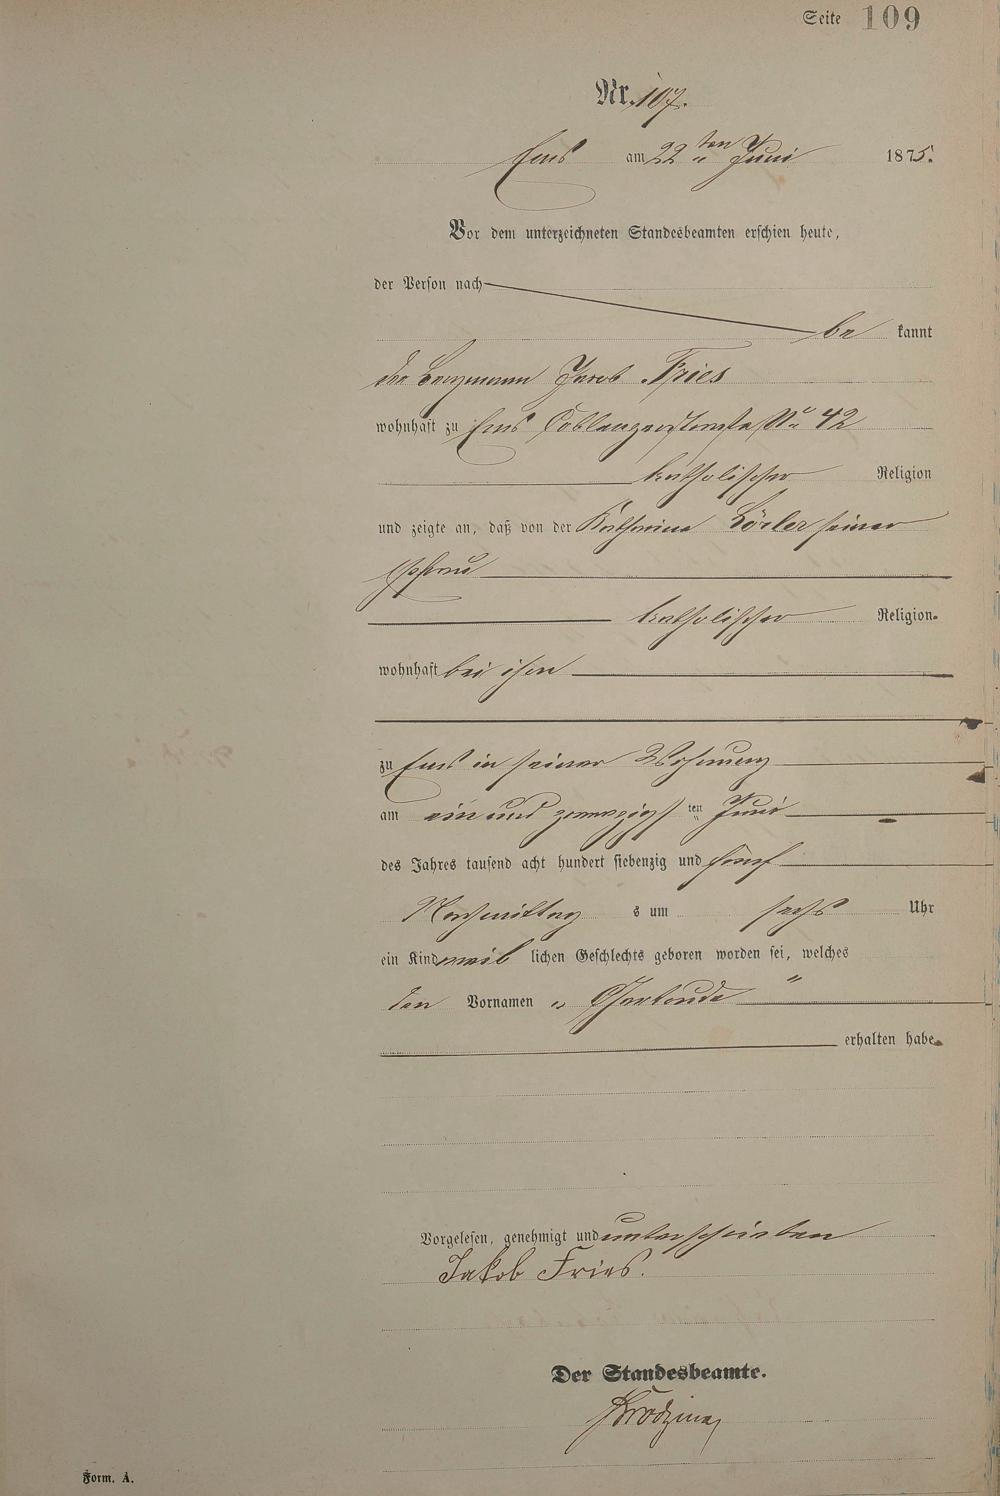 Seite 109
Nr. 107.
Ems am 22ten Juni 1875.
Vor dem unterzeichneten Standesbeamten erschien heute,
der Person nach
be kannt
der Bergmann Jacob Fries
wohnhaft zu Ems Coblenzerstraße Nro 42
katholischer Religion
und zeigte an, daß von der Katharina seiner
Ehefrau
katholischer Religion
wohnhaft bei ihm
zu Ems in seiner Wohnung
am ein und zwanzigsten Juni
des Jahres tausend acht hundert siebenzig und fünf
Nachmittag s um sechs Uhr
ein Kind weib lichen Geschlechts geboren worden sei, welches
den Vornamen „ Gertrude "
erhalten habe
Vorgelesen, genehmigt und unterschrieben
Jakob Fries.
Der Standesbeamte.
Form. A.